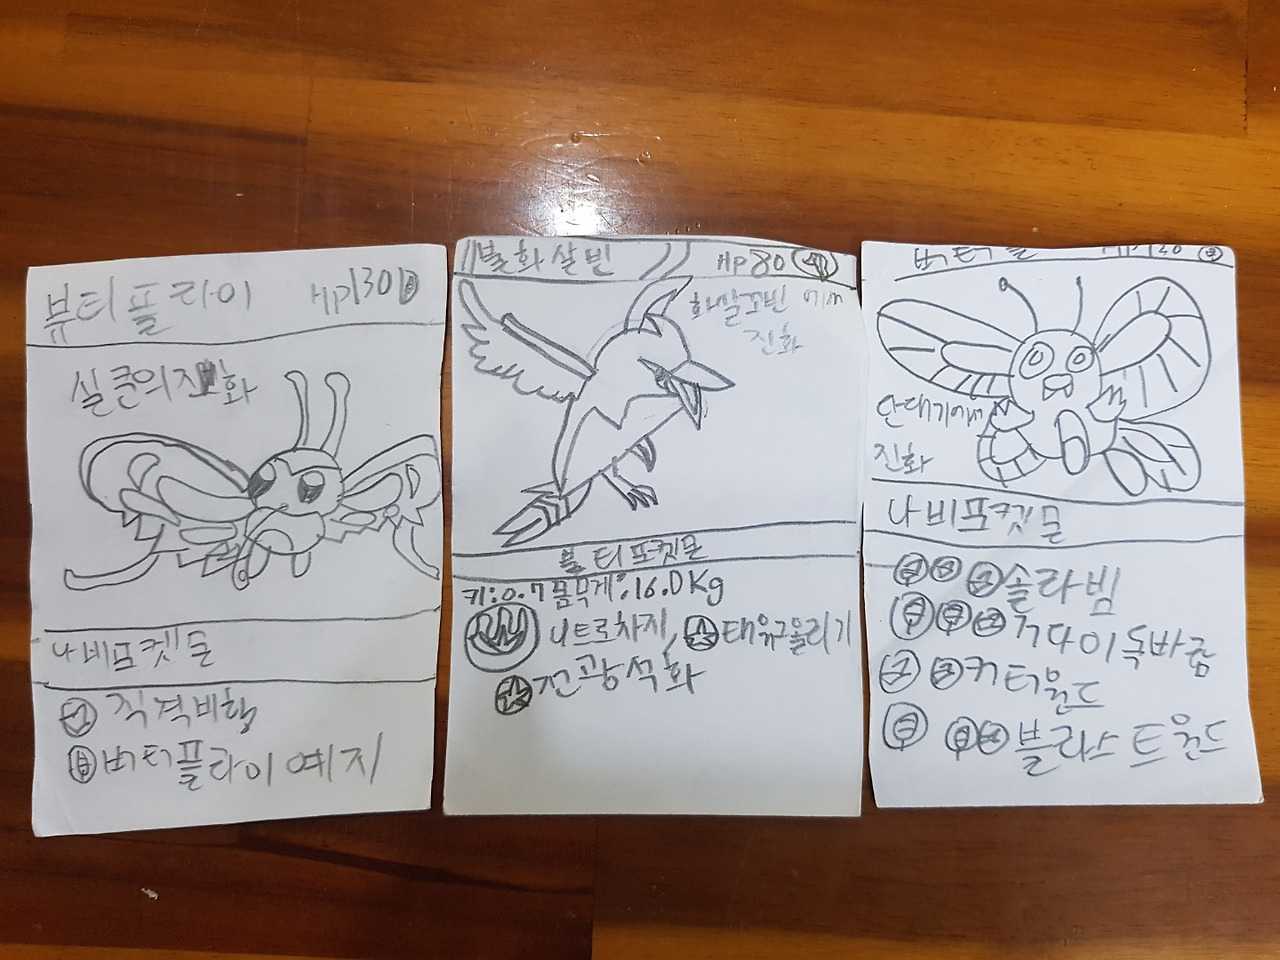 뷰티플라이 HP130
실쿤의진화
나비포켓몬
직격비행
버터플라이에지
불화살빈 HP80
화살꼬빈에서
진화
불티포켓몬
키:0.7 몸무게:16.0Kg
니트로차지, 태유구울리기
전광석화
버터플 HP130
단데기에서
진화
나비포켓몬
솔라빔
거다이독바름
커터윈드
블라스트윈드